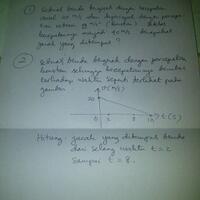 ① Sebuah benda bergerak dengan kecepatan
awal 20 m/s dan dengan
m/s²
kecepatannya menjadi 40 m/s
jarak yang ditempuh ?
② Sebuah benda bergerak dengan percepatan
konstan sehingga kecepatannya berubah
terhadap waktu seperti terlihat pada
gambar.
v (m/s)
20
0
8
10
t (s)
Hitung jarak yang ditempuh benda
dari selang waktu t = 2
sampai t = 8.